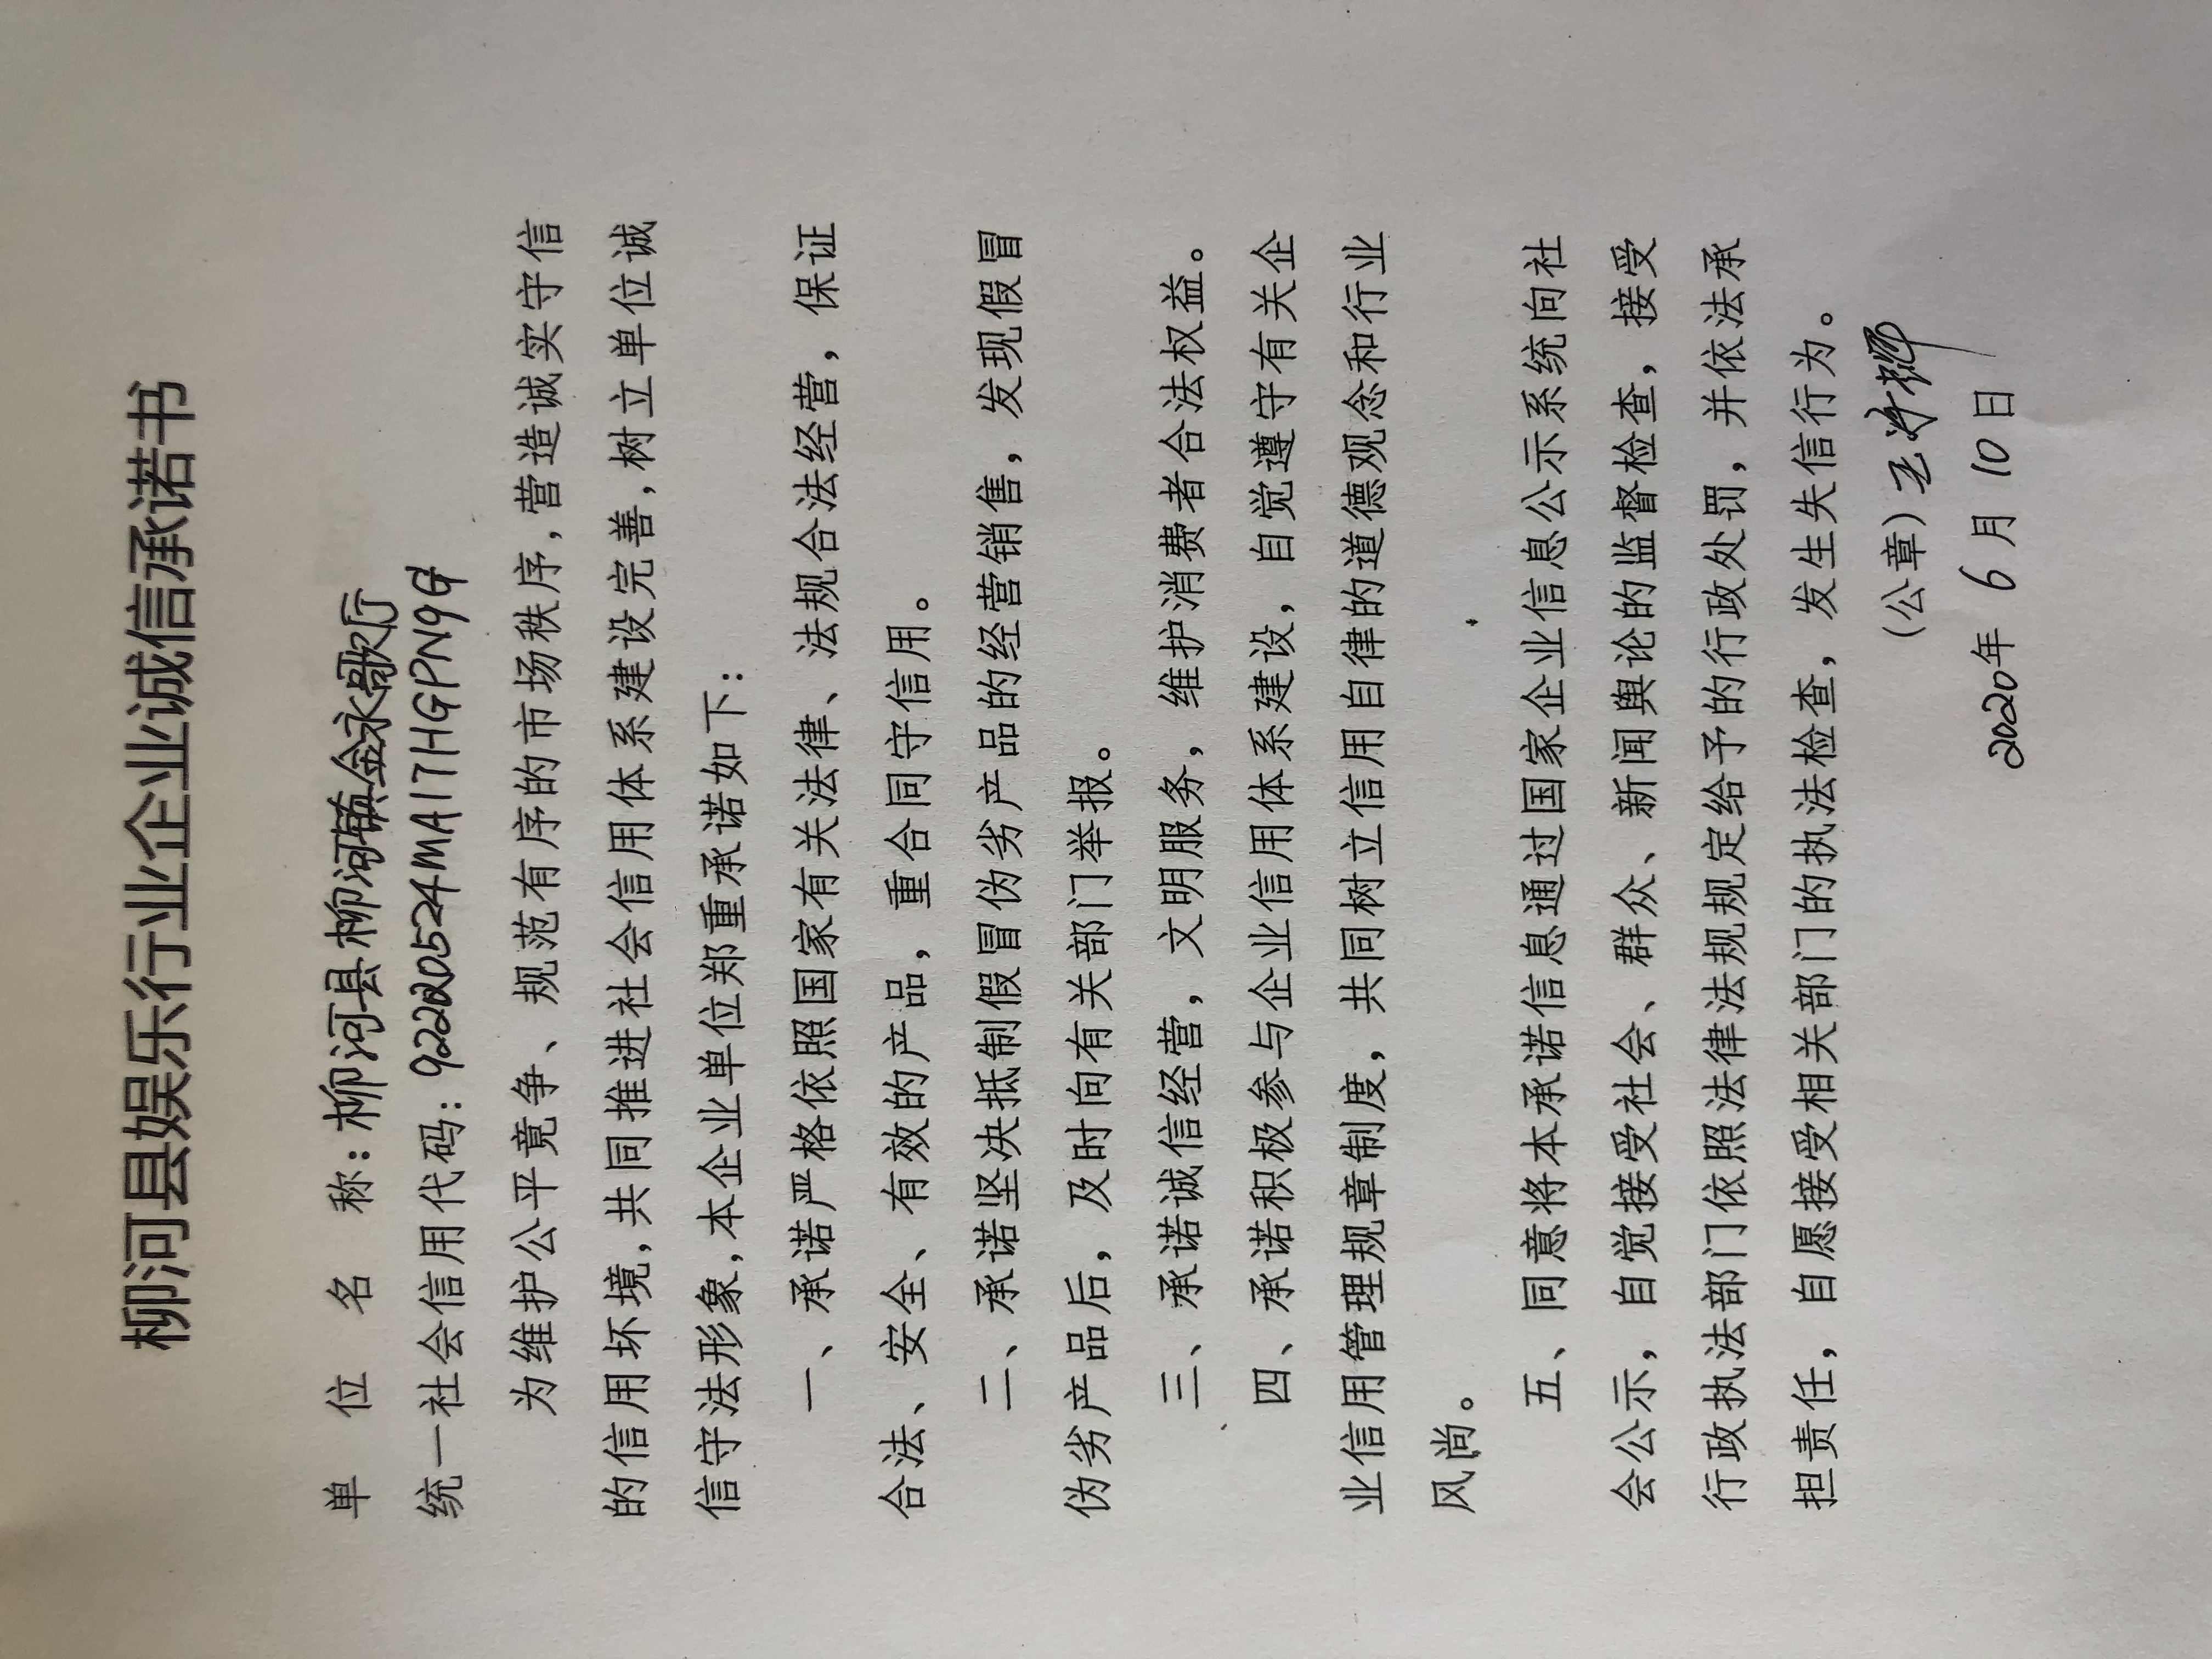 柳河县娱乐行业企业诚信承诺书
单位名称：柳河县柳河镇金永歌厅
统一社会信用代码：92220524MA17HGPN9G
为维护公平竟争、规范有序的市场秩序,营造诚实守信
的信用坏境,共同推进社会信用体系建设完善,树立单位诚
信守法形象,本企业单位郑重承诺如下：
一、承诺严格依照国家有关法律、法规合法经营，保证
合法、安全、有效的产品，重合同守信用。
二、承诺坚决抵制假冒伪劣产品的经营销售，发现假冒
伪劣产品后，及时向有关部门举报。
三、承诺诚信经营，文明服务，维护消费者合法权益。
四、承诺积极参与企业信用体系建设，自觉遵守有关企
业信用管理规章制度，共同树立信用自律的道德观念和行业
风尚。
五、同意将本承诺信息通过国家企业信息公示系统向社
会公示，自觉接受社会、群众、新闻舆论的监督检查，接受
行政执法部门依照法律法规规定给予的行政处罚，并依法承
担责任，自愿接受相关部门的执法检查，发生失信行为。
(公章) 王
2020年 6月 10日